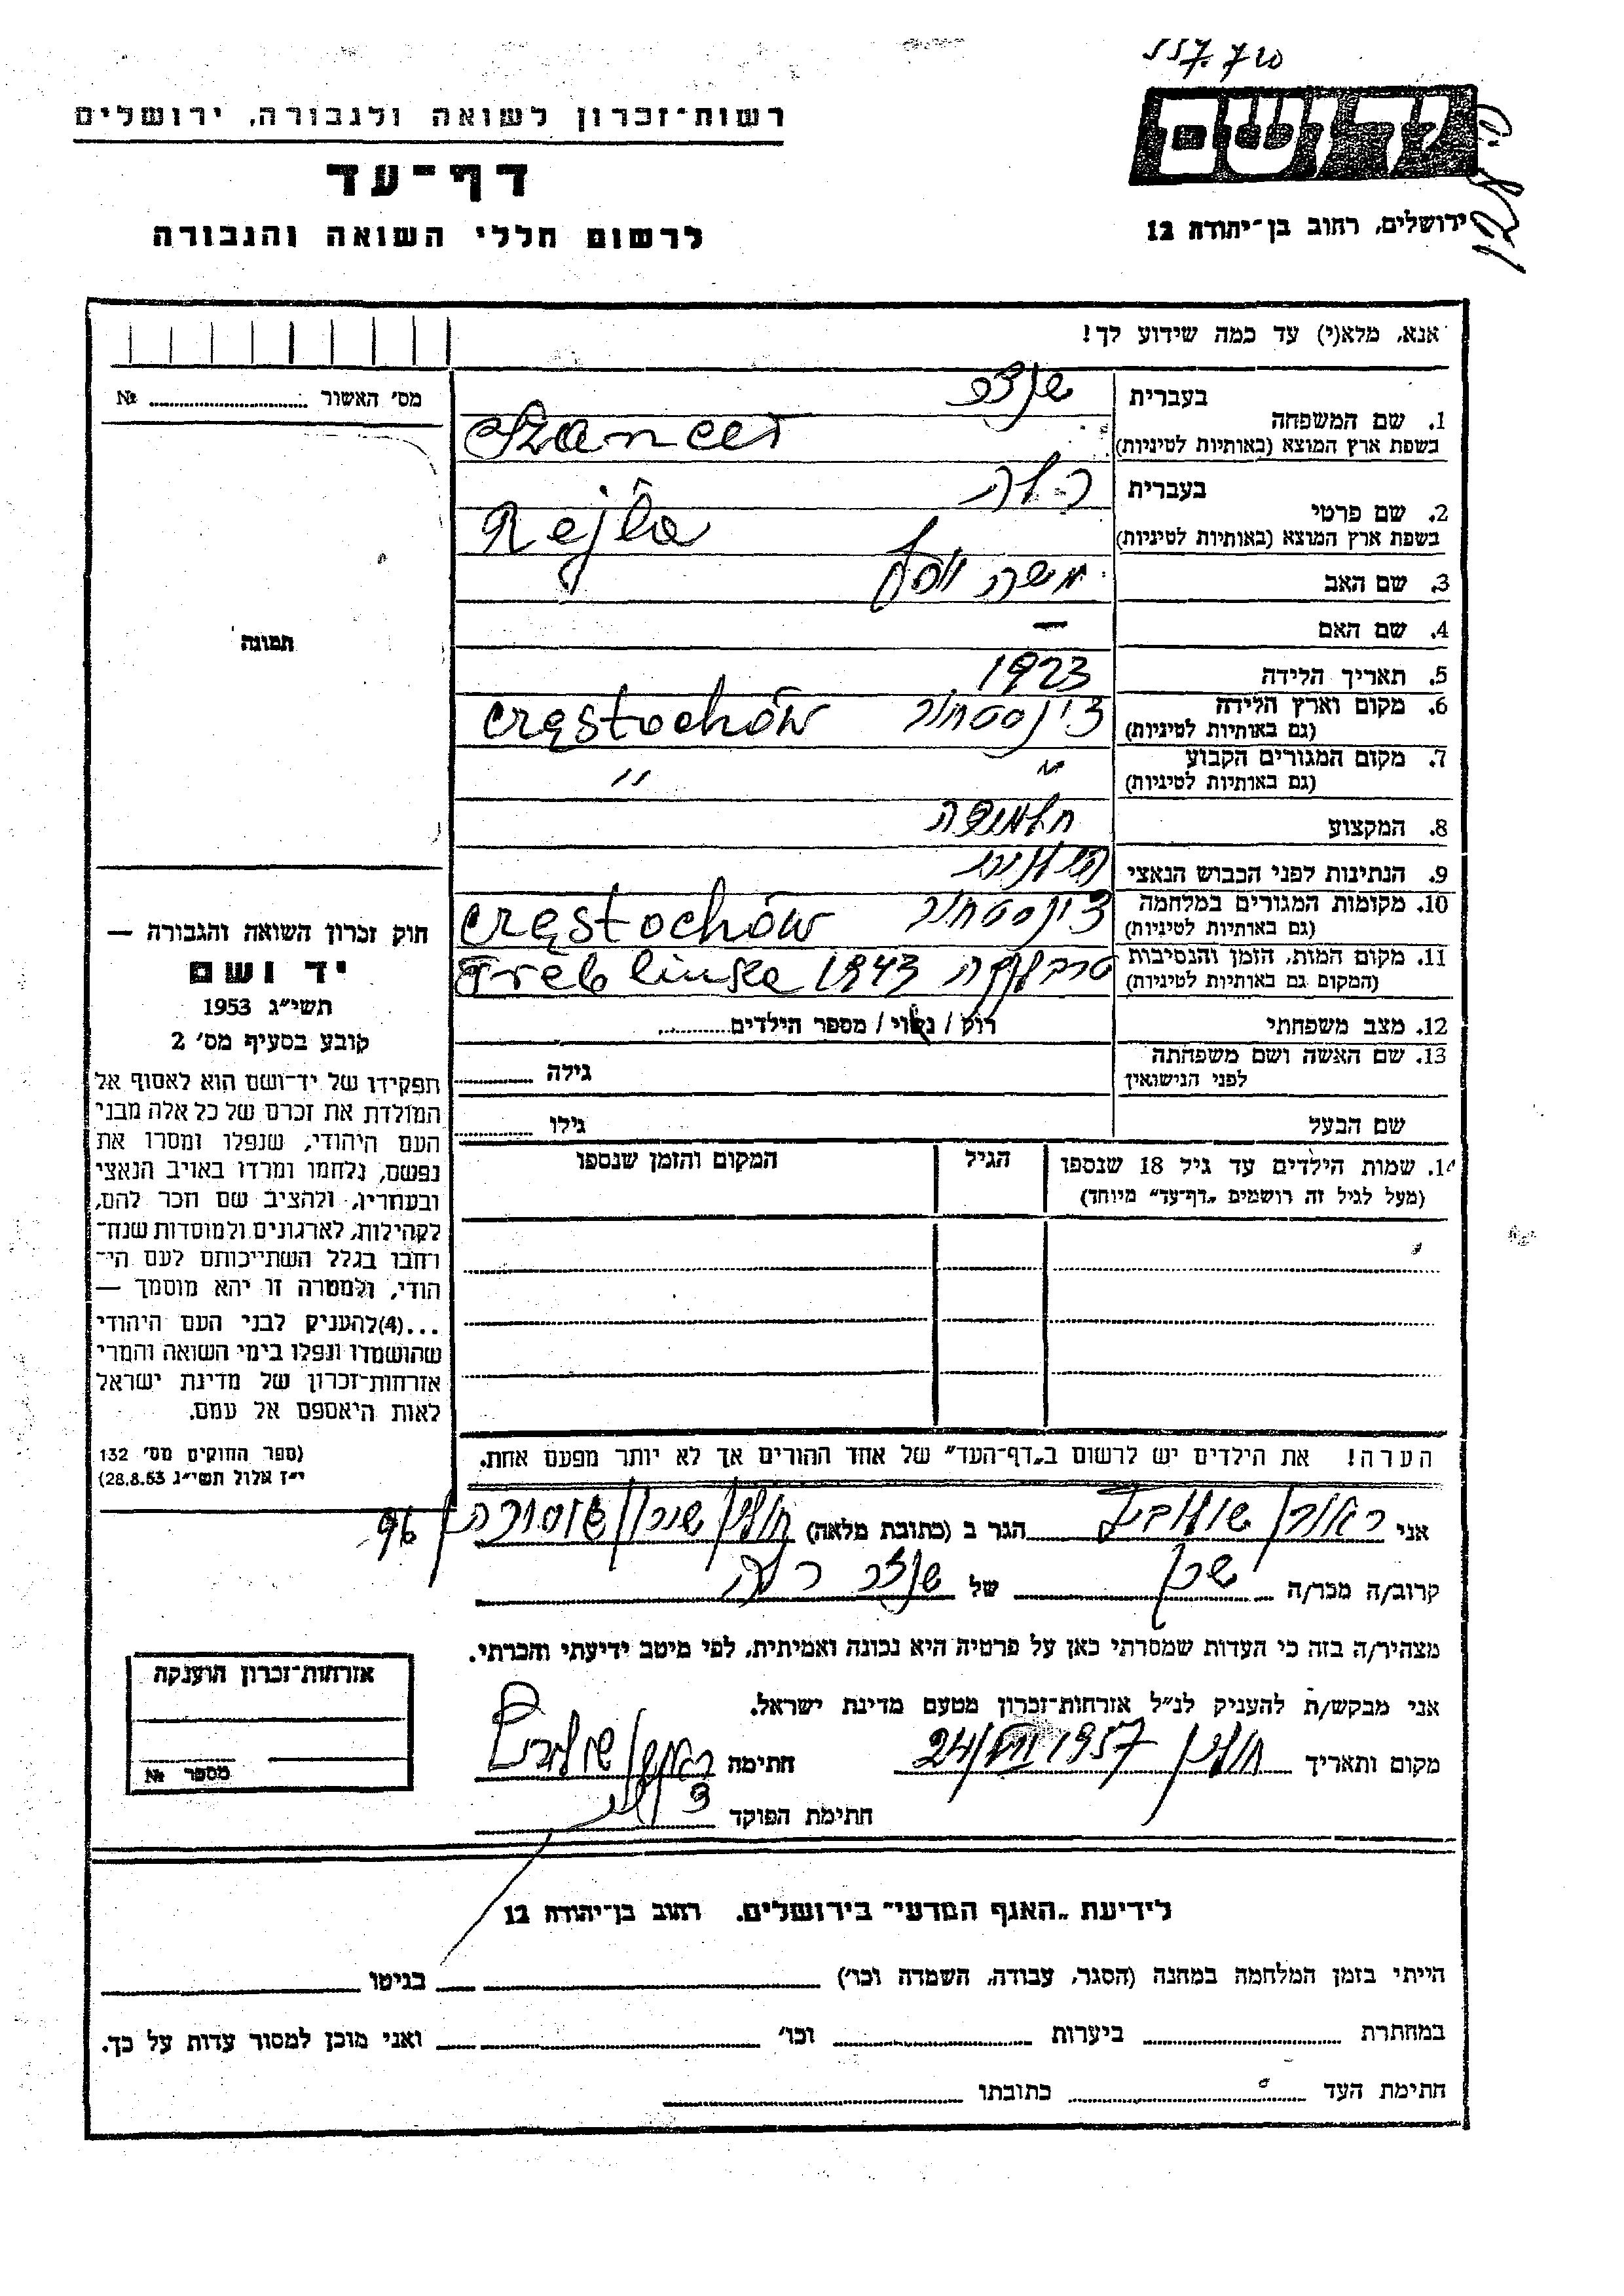 557.720
רשות־זכרון לשואה ולגבורה, ירושלים
דף־עד
לרשום חללי השואה והגבורה
יד ושם
ירושלים, רחוב בן־יהודה 12
אנא, מלא(י) עד כמה שידוע לך!
מס׳ האשור № 
1. שם המשפחה בעברית
בשפת ארץ המוצא (באותיות לטיניות) Szancer
2. שם פרטי בעברית רילה
בשפת ארץ המוצא (באותיות לטיניות) Rejla
3. שם האב משה יוסף
4. שם האם —
5. תאריך הלידה 1923
6. מקום וארץ הלידה צ׳נסטחוב Częstochów
(גם באותיות לטיניות)
7. מקום המגורים הקבוע " "
(גם באותיות לטיניות)
8. המקצוע
9. הנתינות לפני הכבוש הנאצי פולנית
10. מקומות המגורים במלחמה צ׳נסטחוב Częstochów
(גם באותיות לטיניות)
11. מקום המות, הזמן והנסיבות טרבלינקה 1943 Treblinka
(המקום גם באותיות לטיניות)
12. מצב משפחתי רוק / נשוי / מספר הילדים
13. שם האשה ושם משפחתה גילה
לפני הנישואין
שם הבעל גילו
14. שמות הילדים עד גיל 18 שנספו הגיל המקום והזמן שנספו
(מעל לגיל זה רושמים „דף־עד״ מיוחד)
הערה! את הילדים יש לרשום ב„דף־העד״ של אחד ההורים אך לא יותר מפעם אחת.
תמונה
חוק זכרון השואה והגבורה —
יד ושם
תשי״ג 1953
קובע בסעיף מס׳ 2
תפקידו של יד־ושם הוא לאסוף אל
המולדת את זכרם של כל אלה מבני
העם היהודי, שנפלו ומסרו את
נפשם, נלחמו ומרדו באויב הנאצי
ובעוזריו, ולהציב שם וזכר להם,
לקהילות, לארגונים ולמוסדות שנח־
רבו בגלל השתייכותם לעם הי־
הודי, ולמטרה זו יהא מוסמך —
...(4)להעניק לבני העם היהודי
שהושמדו ונפלו בימי השואה והמרי
אזרחות־זכרון של מדינת ישראל
לאות היאספם אל עמם.
(ספר החוקים מס׳ 132
י״ז אלול תשי״ג 28.8.53)
אני הגר ב (כתובת מלאה) חולון שכון 96
קרוב/ה מכר/ה שכן של שנצר רילה
מצהיר/ה בזה כי העדות שמסרתי כאן על פרטיה היא נכונה ואמיתית, לפי מיטב ידיעתי והכרתי.
אני מבקש/ת להעניק לנ״ל אזרחות־זכרון מטעם מדינת ישראל.
מקום ותאריך חולון 24/VII 1957 חתימה
חתימת הפוקד
אזרחות־זכרון הוענקה
מספר №
לידיעת „האגף המדעי״ בירושלים, רחוב בן־יהודה 12
הייתי בזמן המלחמה במחנה (הסגר, עבודה, השמדה וכו׳) בגיטו
במחתרת ביערות וכו׳ ואני מוכן למסור עדות על כך.
חתימת העד כתובתו